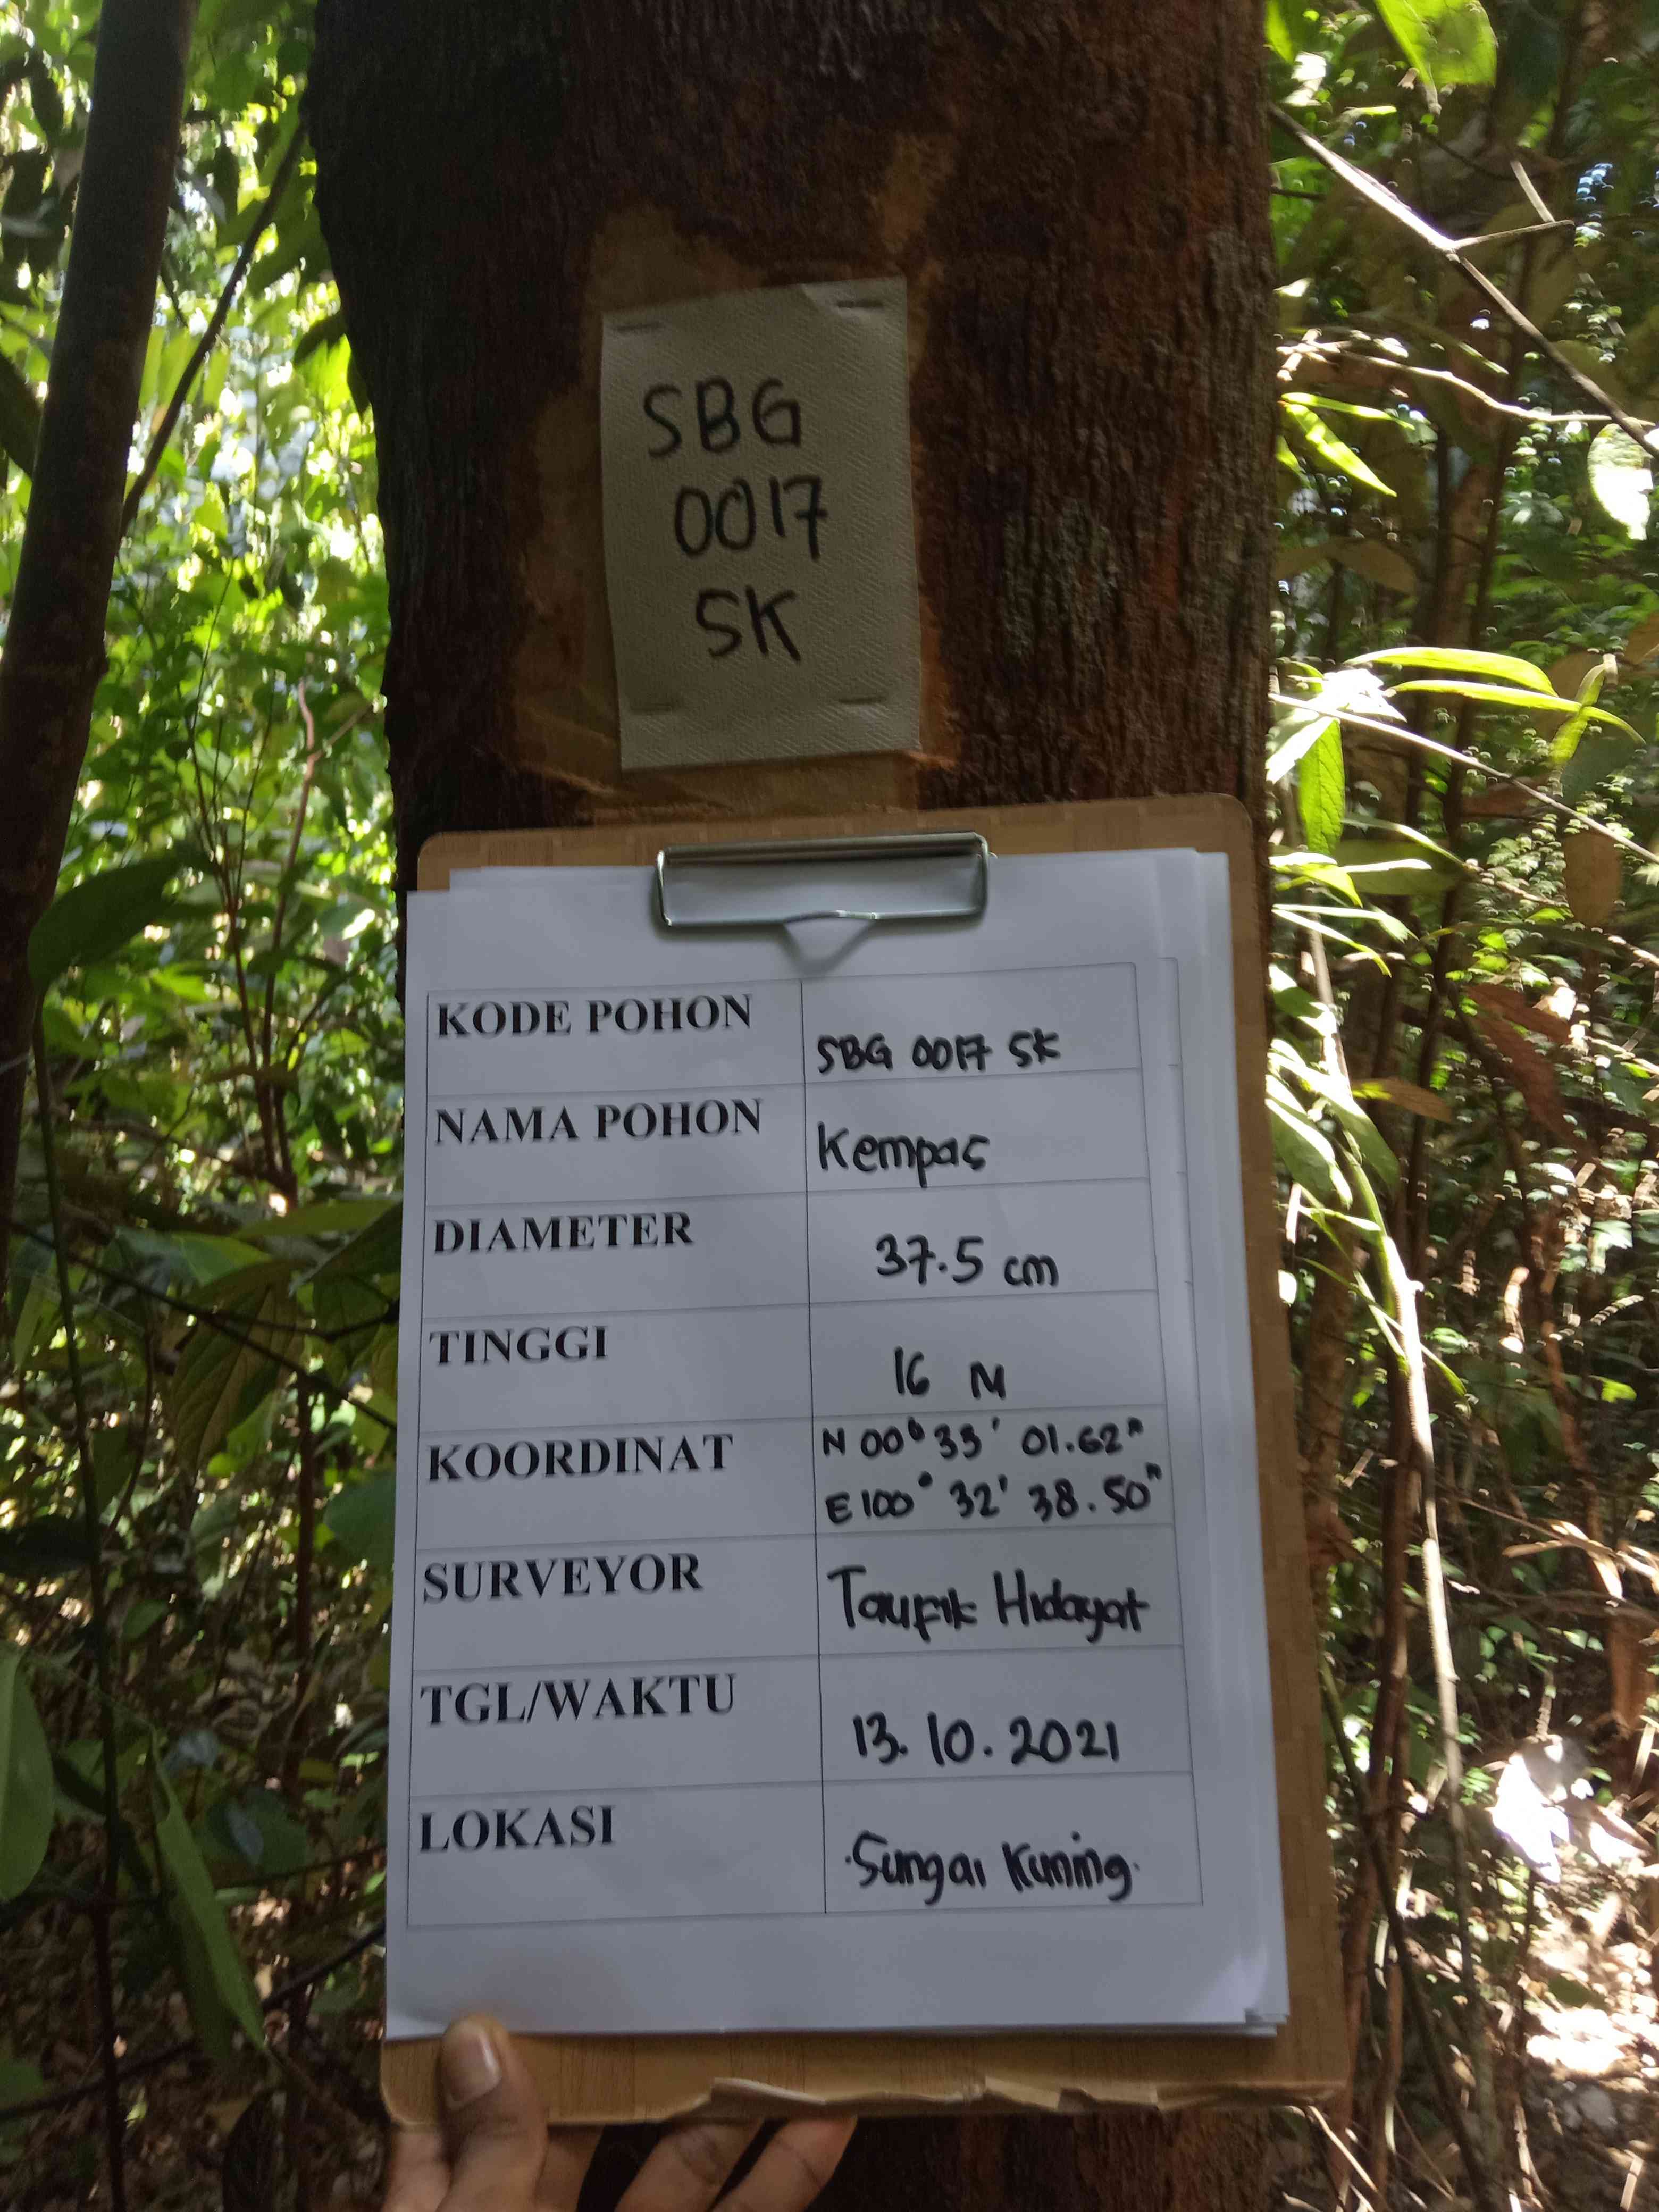 SBG
0017
SK
KODE POHON
SBG 0017 SK
NAMA POHON
Kempas
DIAMETER
37.5 cm
TINGGI
16 M
KOORDINAT
N 00° 33' 01.62"
E 100° 32' 38.50"
SURVEYOR
Taufik Hidayat
TGL/WAKTU
13.10.2021
LOKASI
Sungai Kuning